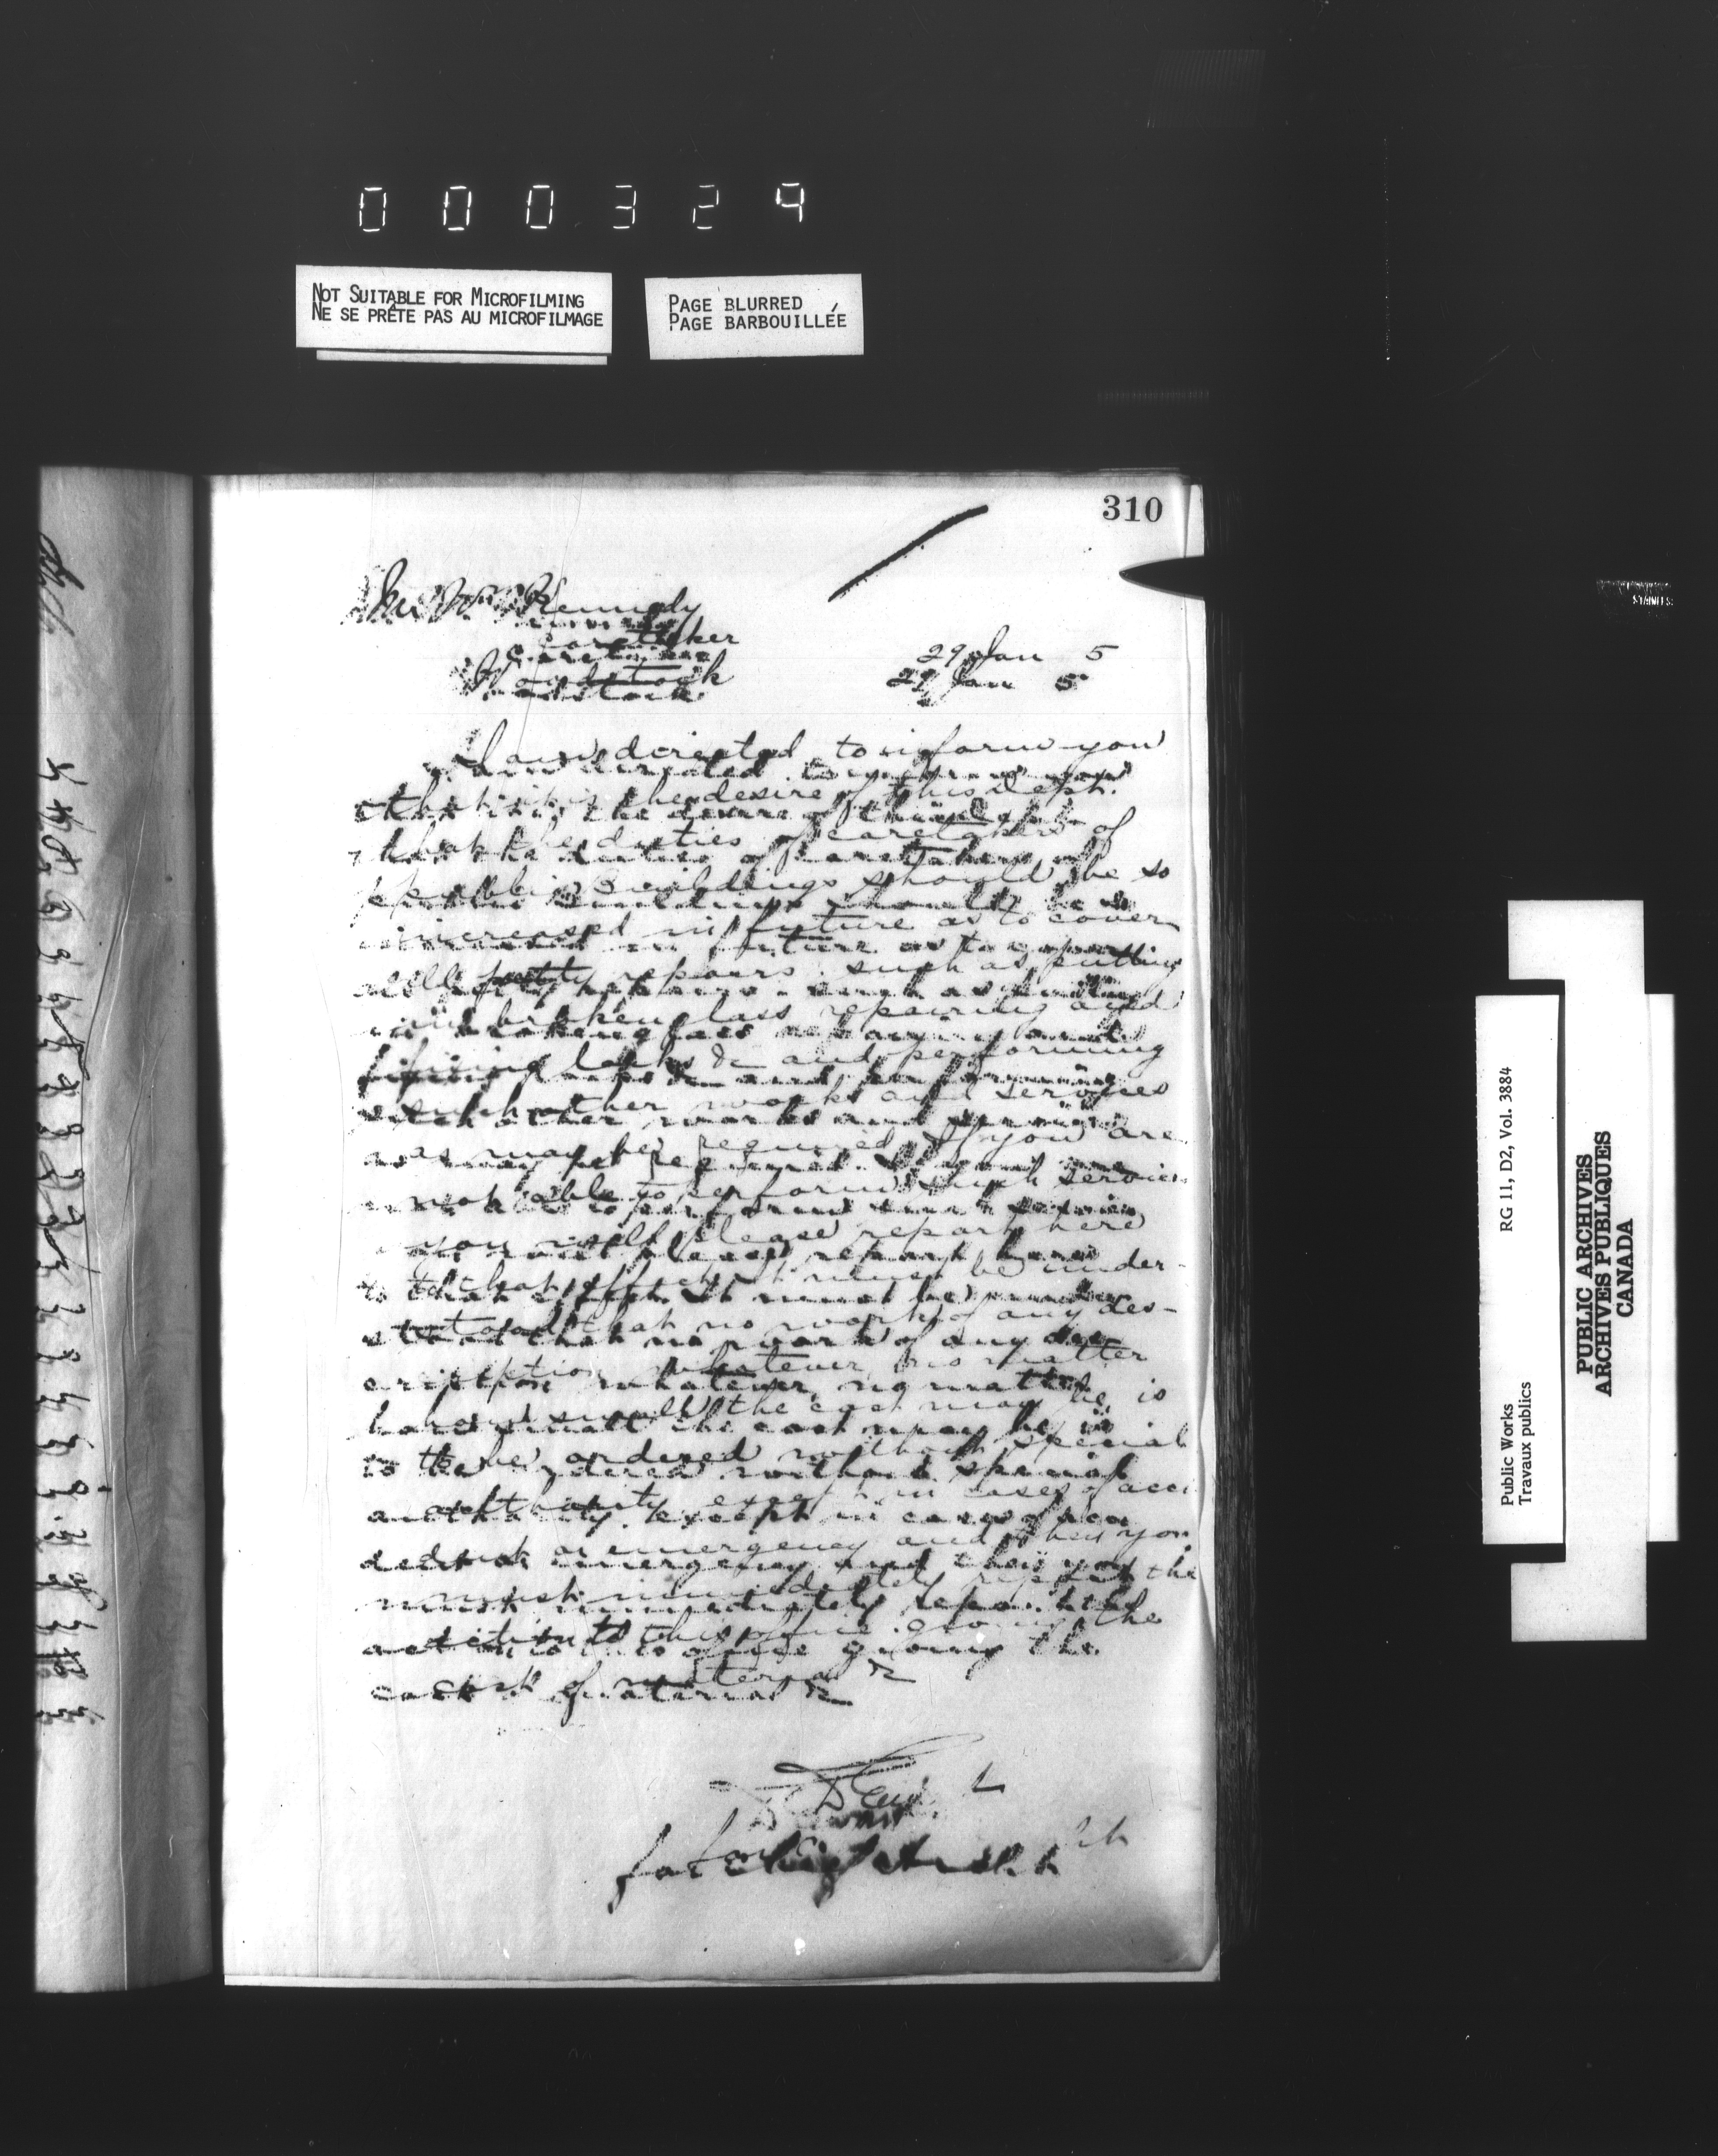 000324
NOT SUITABLE FOR MICROFILMING
NE SE PRÊTE PAS AU MICROFILMAGE
PAGE BLURRED
PAGE BARBOUILLÉE
310
Kennedy
Caretaker
Woodstock
29 Jan 5
I am directed to inform you
that it is the desire of this Dept.
that the duties of caretakers of
public Buildings should be so
increased in future as to cover
all petty repairs such as putting
in broken glass repairing and
fixing locks &c and performing
such other works and services
as may be required. If you are
not able to perform such services
yourself please report here
to that effect. It must be under-
stood that no work of any des-
cription whatever, no matter
how small the cost may be is
to be ordered without special
authority except in cases of acci
dent or emergency and then you
must immediately report the
action to this office giving the
cost of material &c
D Ewart
for Chief Archt
Public Works
Travaux publics
RG 11, D2, Vol. 3884
PUBLIC ARCHIVES
ARCHIVES PUBLIQUES
CANADA